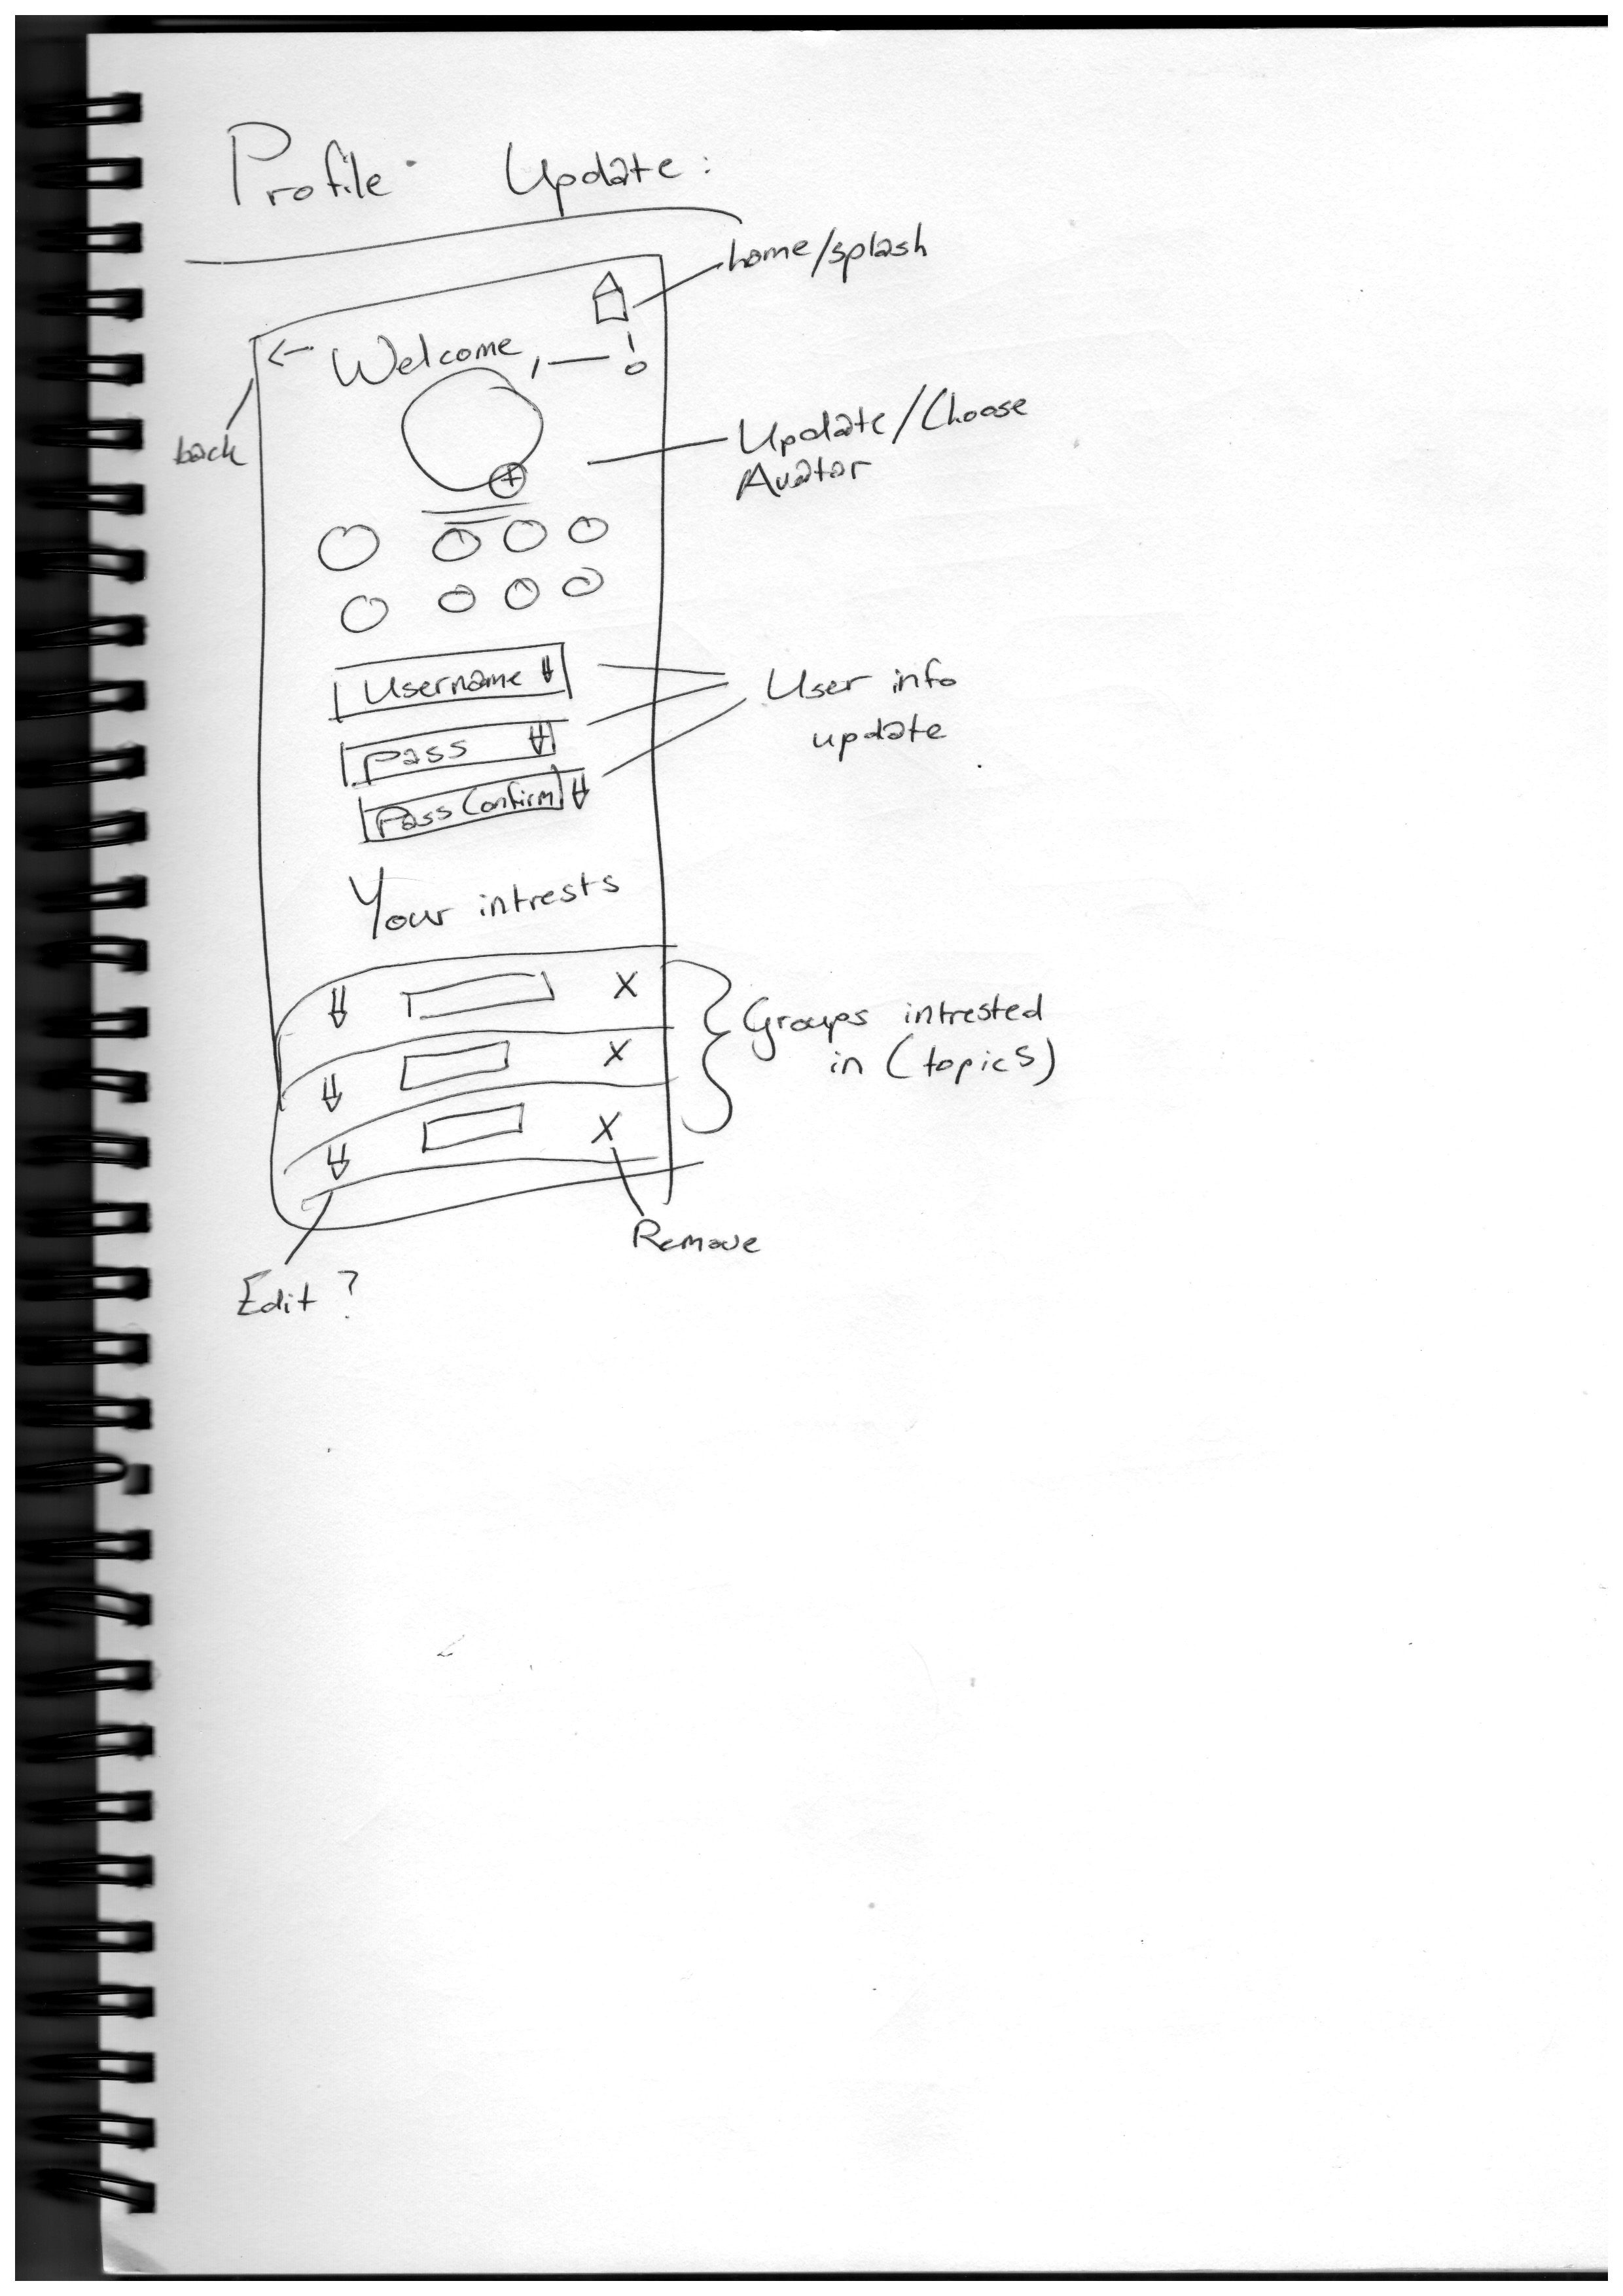 Profile: Update:
home/splash
← Welcome, —!
back
Update/Choose
Avatar
Username
pass
Pass Confirm
User info
update
Your intrests
X
X
X
Groups intrested
in (topics)
Remove
Edit?